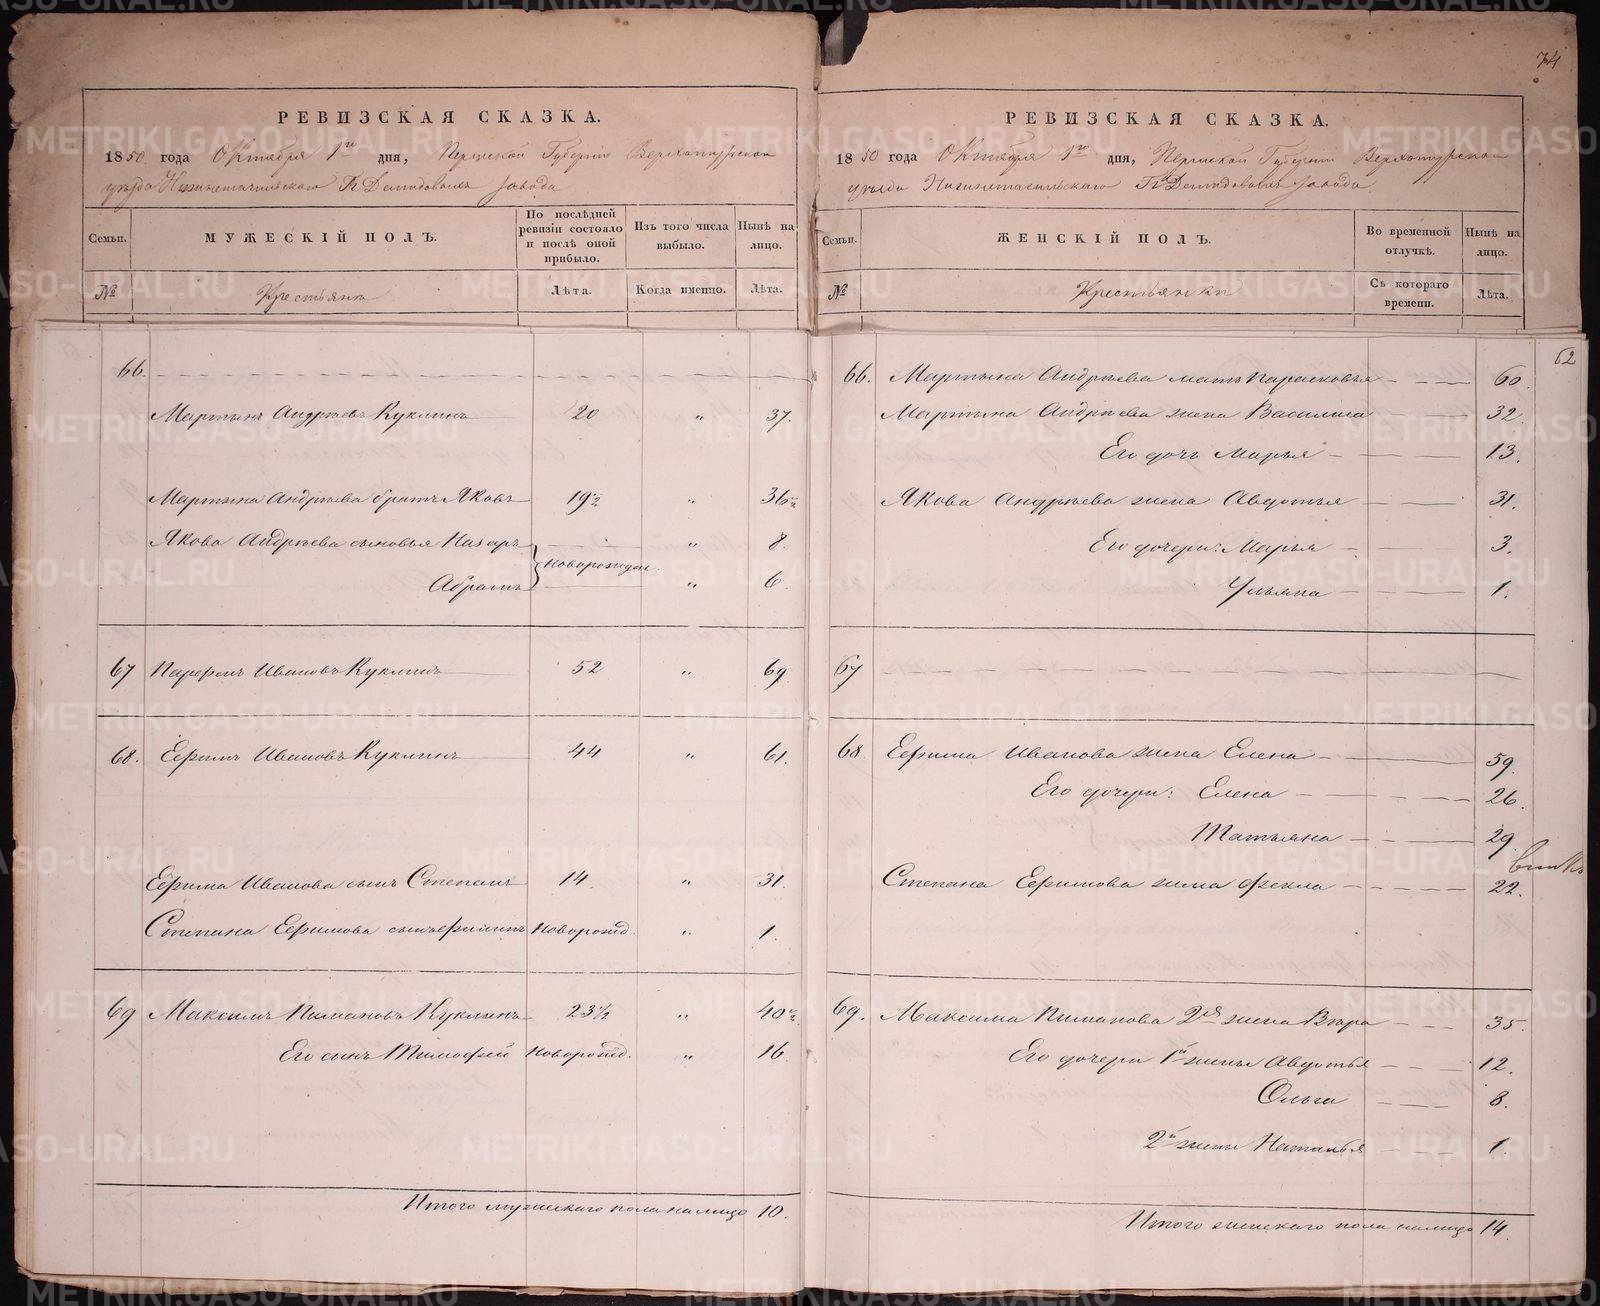 74
РЕВИЗСКАЯ СКАЗКА.
1850 года Октября 1го дня, Пермской Губернiи Верхотурскаго
уѣзда Нижнетагильскаго Гг Демидовыхъ завода
Семьи. МУЖЕСКIЙ ПОЛЪ. По послѣдней ревизiи состояло и послѣ оной прибыло. Изъ того числа выбыло. Нынѣ на лицо.
№ Крестьяне Лѣта. Когда именно. Лѣта.
66.
Мартынъ Андрѣевъ Куклинъ 20 " 37.
Мартына Андрѣева братъ Яковъ 19½ " 36½
Якова Андрѣева сыновья Назаръ " 8.
новорожден.
Абрамъ " 6.
67 Парфенъ Ивановъ Куклинъ 52 " 69
68. Ефимъ Ивановъ Куклинъ 44 " 61.
Ефима Иванова сынъ Степанъ 14 " 31.
Степана Ефимова сынъ Филипъ новорожд. " 1.
69 Максимъ Пимановъ Куклинъ 23½ " 40½
Его сынъ Тимофей новорожд. " 16.
Итого мужескаго пола налицо 10.
РЕВИЗСКАЯ СКАЗКА.
1850 года Октября 1го дня, Пермской Губернiи Верхотурскаго
уѣзда Нижнетагильскаго Гг Демидовыхъ завода
Семьи. ЖЕНСКIЙ ПОЛЪ. Во временной отлучкѣ. Нынѣ на лицо.
№ Крестьянки Съ котораго времени. Лѣта.
62
66. Мартына Андрѣева мать Парасковья 60.
Мартына Андрѣева жена Василиса 32.
Его дочь Марья 13.
Якова Андрѣева жена Авдотья 31.
Его дочери: Марья 3.
Ульяна 1.
67
68 Ефима Иванова жена Елена 59.
Его дочери: Елена 26.
Татьяна 29.
Степана Ефимова жена Фекла 22.
69. Максима Пиманова 2ая жена Вѣра 35.
Его дочери 1й жены Авдотья 12.
Ольга 8.
2й жены Наталья 1.
Итого женскаго пола налицо 14.
METRIKI.GASO-URAL.RU